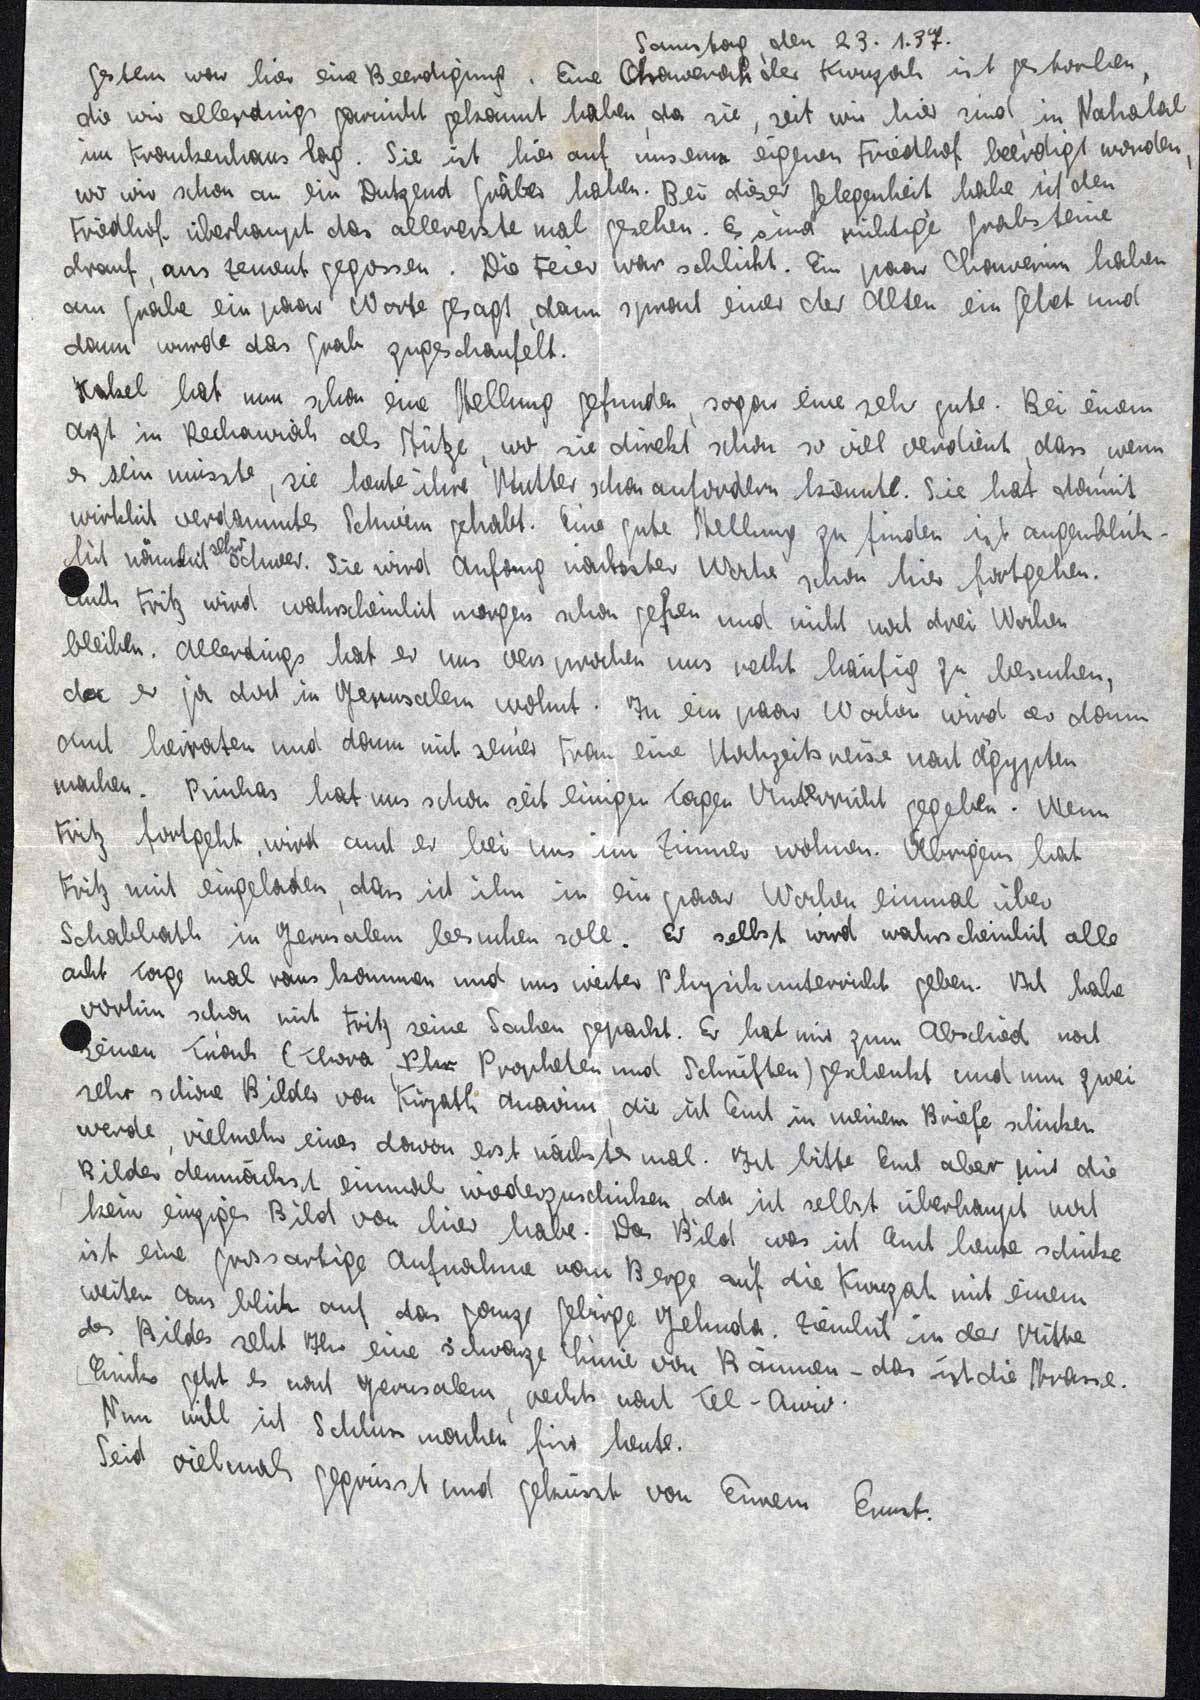 Samstag, den 23. 1. 37.
Gestern war hier eine Beerdigung. Eine Chawerah der Kwuzah ist gestorben,
die wir allerdings garnicht gekannt haben, da sie, seit wir hier sind, in Nahalal
im Krankenhaus lag. Sie ist hier auf unserm eigenen Friedhof beerdigt worden,
wo wir schon an ein Dutzend Gräber haben. Bei dieser Gelegenheit habe ich den
Friedhof überhaupt das allererste mal gesehen. Es sind richtige Grabsteine
drauf, aus Zement gegossen. Die Feier war schlicht. Ein paar Chawerim haben
am Grabe ein paar Worte gesagt, dann sprach einer der Alten ein Gebet und
dann wurde das Grab zugeschaufelt.
hat nun schon eine Stellung gefunden, sogar eine sehr gute. Bei einem
Arzt in Rechawiah als Stütze, wo sie direkt schon so viel verdient, dass, wenn
es sein müsste, sie heute ihre Mutter schon anfordern könnte. Sie hat damit
wirklich verdammtes Schwein gehabt. Eine gute Stellung zu finden ist augenblick-
lich nämlich sehr schwer. Sie wird Anfang nächster Woche schon hier fortgehen.
Auch Fritz wird wahrscheinlich morgen schon gehen und nicht noch drei Wochen
bleiben. Allerdings hat er uns versprochen uns recht häufig zu besuchen,
da er ja dort in Jerusalem wohnt. In ein paar Wochen wird er dann
auch heiraten und dann mit seiner Frau eine Hochzeitsreise nach Ägypten
machen. Pinchas hat uns schon seit einigen Tagen Unterricht gegeben. Wenn
Fritz fortgeht, wird auch er bei uns im Zimmer wohnen. Übrigens hat
Fritz mich eingeladen, dass ich ihn in ein paar Wochen einmal über
Schabbath in Jerusalem besuchen soll. Er selbst wird wahrscheinlich alle
acht Tage mal raus kommen und uns weiter Physikunterricht geben. Ich habe
vorhin schon mit Fritz seine Sachen gepackt. Er hat mir zum Abschied noch
seinen Tnach (Thora, Propheten und Schriften) geschenkt und nun zwei
sehr schöne Bilder von Kirjath Anavim, die ich Euch in meinem Briefe schicken
werde, vielmehr eines davon erst nächstes mal. Ich bitte Euch aber mir die
Bilder demnächst einmal wiederzuschicken, da ich selbst überhaupt noch
kein einziges Bild von hier habe. Das Bild, was ich Euch heute schicke
ist eine grossartige Aufnahme vom Berge auf die Kwuzah mit einem
weiten Ausblick auf das ganze Gebirge Jehuda. Ziemlich in der Mitte
des Bildes seht Ihr eine schwarze Linie von Bäumen – das ist die Strasse.
Links geht es nach Jerusalem, rechts nach Tel-Awiw.
Nun will ich Schluss machen für heute.
Seid vielmals gegrüsst und geküsst von Eurem Ernst.